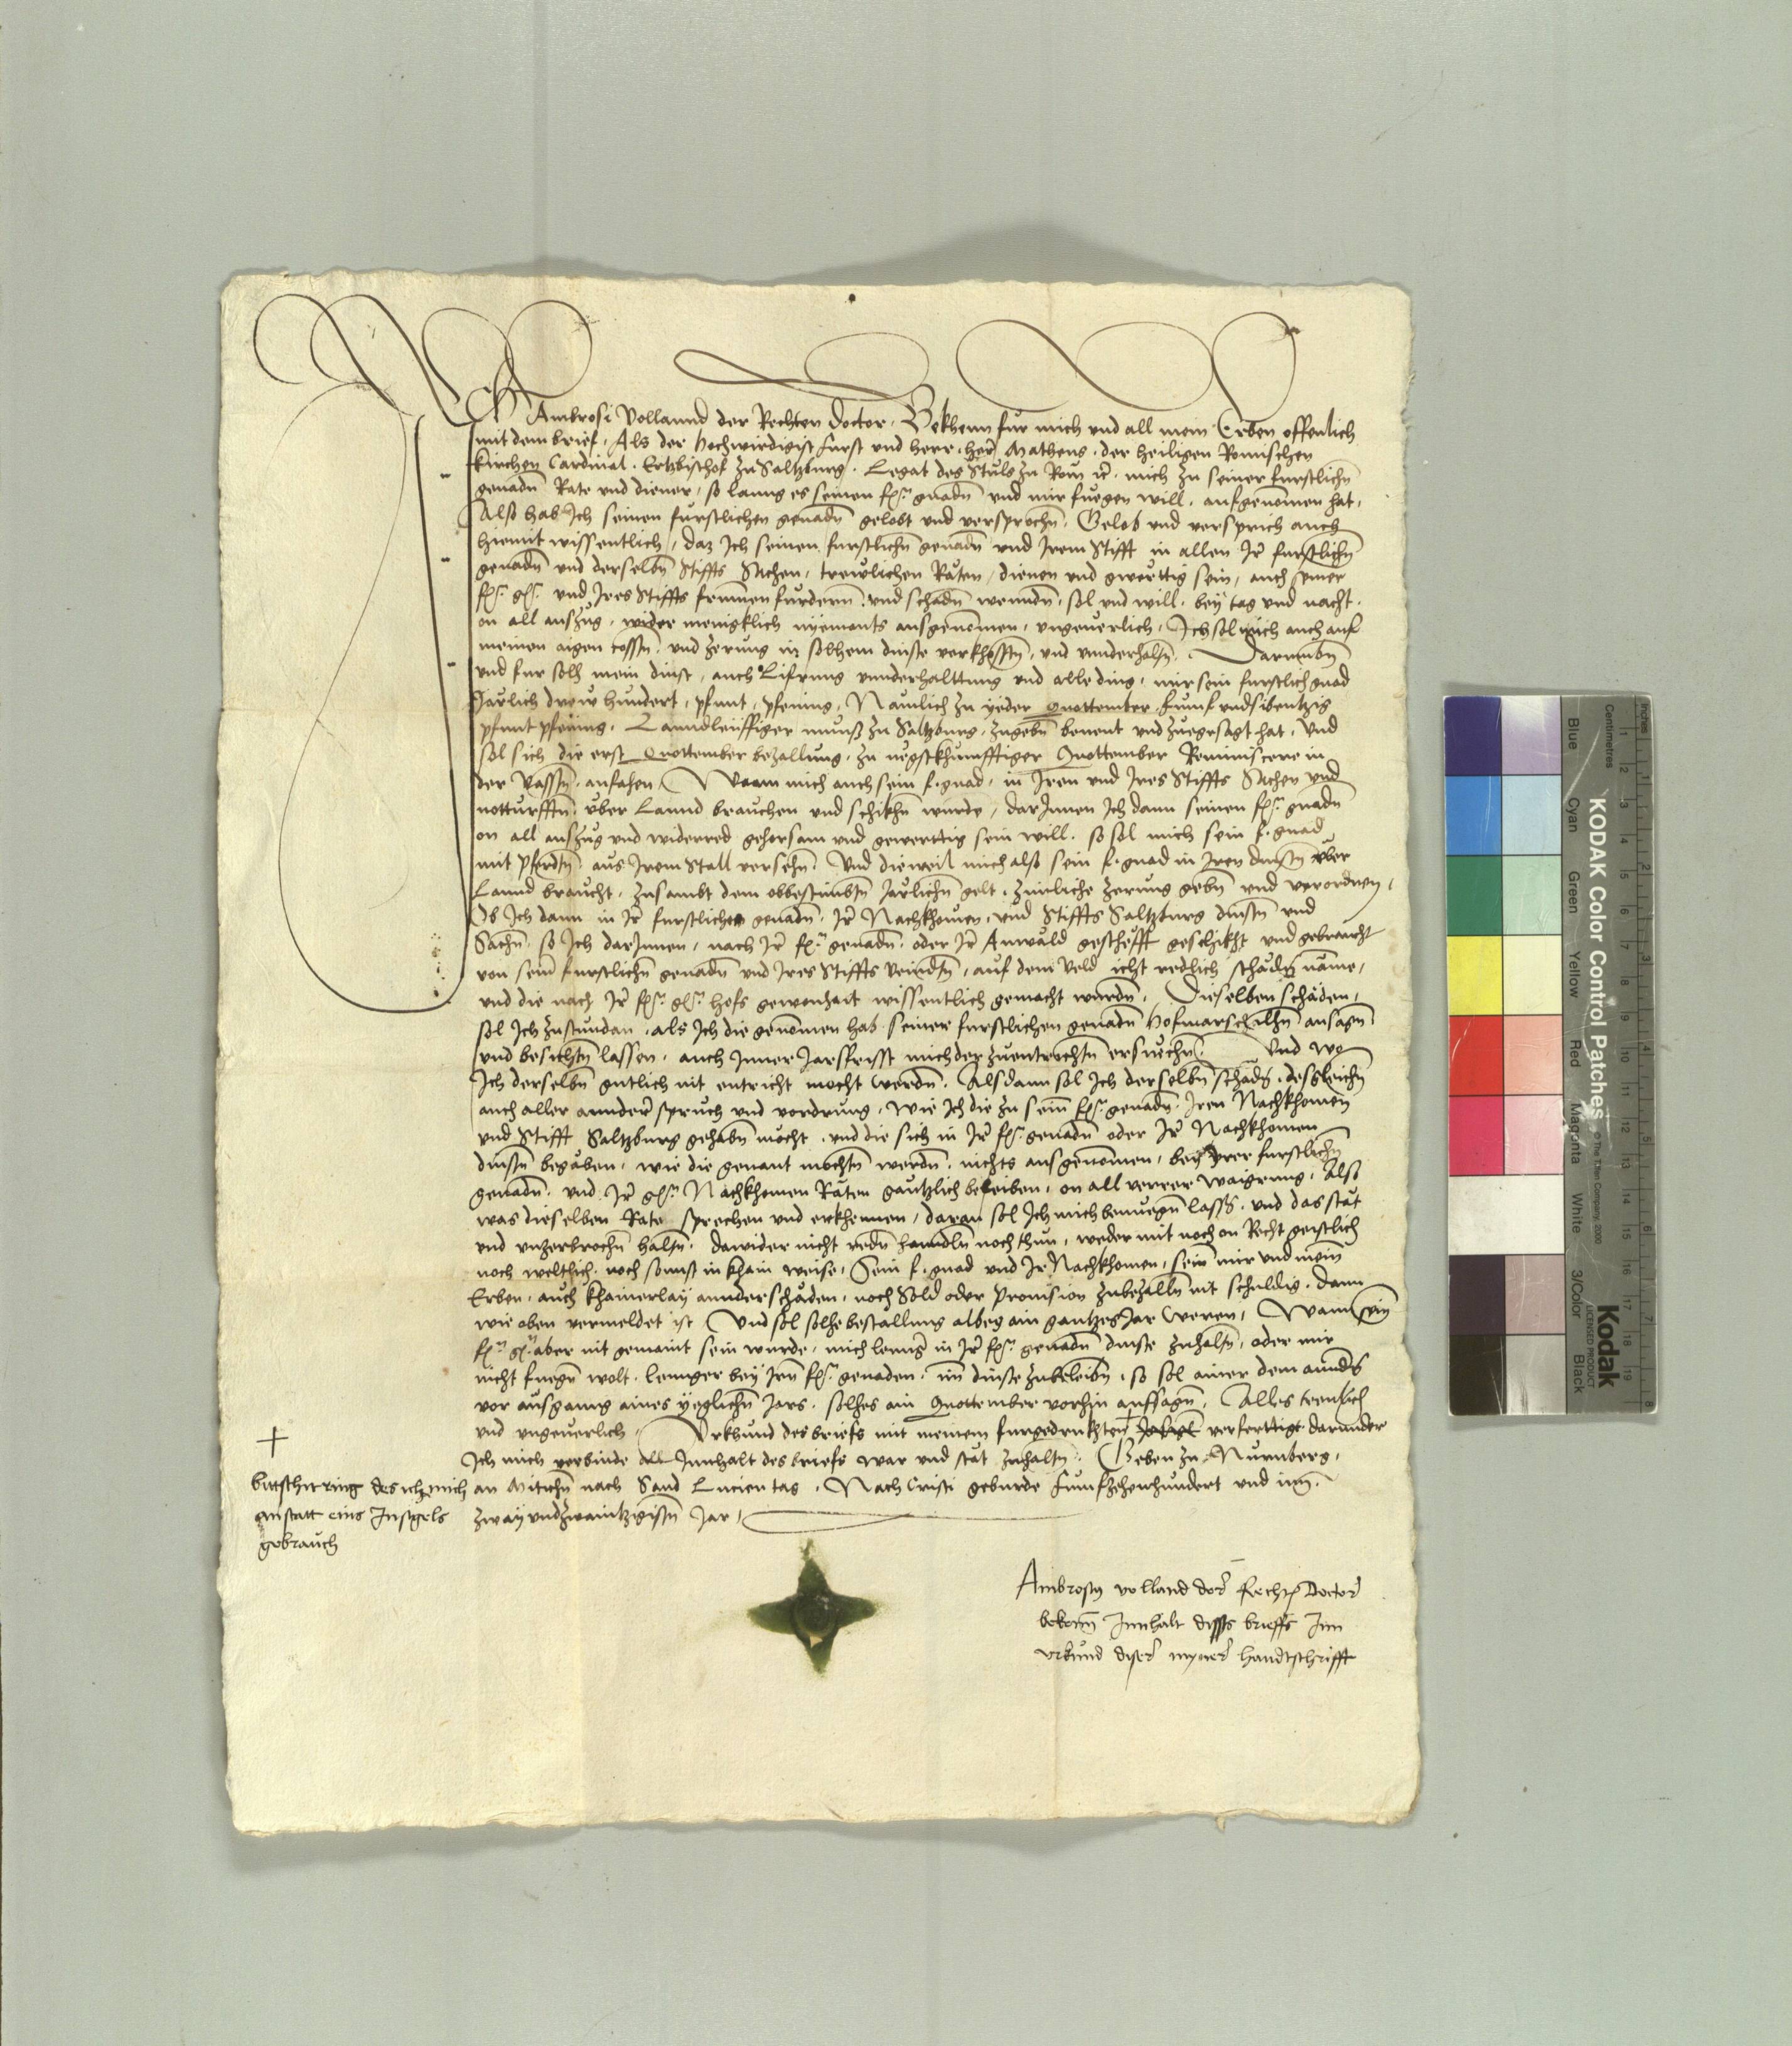 Ich Ambrosi Vollannd der Rechten Doctor. Bekhenn fur mich vnd all mein Erben offenlich
mit dem brief. Als der Hochwirdigist furst vnd herr. her Matheus. der heiligen Romischen
kirchen Cardinal. Ertzbischof zu Saltzburg. Legat des Stuls zu Rom rc. mich zu seiner furstlichn
genadn Rate vnd diener, so lanng es seinen f. gnadn vnd mir fuegen will. aufgenomen hat,
Also hab Ich seinen furstlichen genadn gelobt vnd versprochn. Gelob vnd versprich auch
hiemit wissentlich, daz Ich seinen furstlichn genadn vnd Irem Stifft in allen Ir furstlichn
genadn vnd derselbn Stiffts Sachen, trewlichen Raten, dienen vnd gwerttig sein, auch seiner
f. g. vnd Ires Stiffts frummen furdern. vnd schadn wenndn, sol vnd will. bey tag vnd nacht.
on all auszug, wider menigklich nyemants ausgenomen, vngeuerlich, Ich sol mich auch auf
meinen aigen cosstn, vnd zerung in solhem dinste verkhosstn, vnd vnnderhaltn. Darumbn
vnd fur solh mein dinst, auch Lifrung vnnderhalttung vnd alle ding, mir sein furstlich gnad
Järlich drew hundert, phunt, phening, Namlich zu yeder Quottember funf vnd sibentzig
phunt phening. Lanndleuffiger munss zu Saltzburg, zugebn benent vnd zuegesagt hat, Vnd
sol sich die erst Quottember bezallung, zu negstkhunfftiger Quottember Reminiscere in
der Vassn, anfahen, Wann mich auch sein f. gnad, in Iren vnd Ires Stiffts Sachen vnd
notturfftn, vber Lannd brauchen vnd schikhn wurde, darInnen Ich dann seinen f. gnadn
on all auszug vnd widerred gehorsam vnd gewerttig sein will. so sol mich sein f. gnad
mit pherdtn aus Irem Stall versehn. Vnd dieweil mich also sein f. gnad in Iren dinstn vber
Lannd braucht, zusambt dem obbestimbtn Järlichn gelt. zimliche zerung gebn vnd verordnen,
Ob Ich dann in Ir furstlichen genadn, Ir Nachkhomen, vnd Stiffts Saltzburg dinstn vnd
Sachn. so Ich darInnen, nach Ir f. genadn. oder Ir Anwäld geschefft geschikht vnd gebraucht
von sein furstlichn genadn vnd Ires Stiffts veindtn, auf dem Veld icht redlich schadn näme,
vnd die nach Ir f. g. hofs gewonhait wissentlich gemacht wurdn, Dieselben schäden,
sol Ich zustundan, als Ich die genomen hab seiner furstlichen genadn Hofmarschalhn ansagn
vnd besichtn lassen, auch Inner Jarsfrisst mich der zuentrichtn ersuechn, Vnd wo
Ich derselbn gutlich nit entricht mocht werdn. Alsdann sol Ich derselbn schadn, desgleichn
auch aller annder spruch vnd vordrung, wie Ich die zu sein f. genadn. Iren Nachkhomen
vnd Stifft Saltzburg gehabn möcht. vnd die sich in Ir f. genadn oder Ir Nachkhomen
dinstn begäben, wie die genant mochtn werdn. nichts ausgenomen, bey Irer furstlichn
genadn. vnd Ir g. Nachkhomen Räten gäntzlich beleiben, on all verrer waigrung, Also
was dieselben Räte sprechen vnd erkhennen, daran sol Ich mich benuegn lassn. vnd das stät
vnd vnzerbrochn haltn. dawider nicht redn hanndln noch thun, weder mit noch on Recht geistlich
noch weltlich. noch sonnst in khain weise, Sein f. gnad vnd Ir Nachkhomen, sein mir vnd mein
Erben, auch khainerlay annder schäden, noch Sold oder prouision zubezalln nit schuldig. dann
wie oben vermeldet ist. Vnd sol solhe bestallung albeg ain gantzes Jar weren, Wann sein
f. g. aber nit gemaint sein wurde, mich lennger in Ir f. genadn dinste zuhaltn, oder mir
nicht fuegn wolt. lennger bey Irn f. genaden. im dinste zubeleibn, so sol ainer dem annderen
vor ausganng aines yeglichn Jars. solhes ain Quottember vorhin aufsagn. Alles trewlich
vnd vngeuerlich, Vrkhund des briefs mit meinem furgedrukhten Insigl verferttigt darunder
Ich mich verbinde all Innhalt des briefs war vnd stät zuhaltn. Geben zu Nurmberg,
an Mitichn nach Sand Lucien tag, Nach Cristi geburde funfzehenhundert vnd im
zway vnd zwaintzigistn Jar,
+
bittschir ring des ich mich
anstatt eins Insigels
gebrauch
Ambrosy volland der Rechten Doctor
bekenn Innhalt diss brieffs Inn
vrkund diser myner handtschrifft
KODAK Color Control Patches
© The Tiffen Company, 2000
Kodak
LICENSED PRODUCT
Inches
Centimetres
Blue
Cyan
Green
Yellow
Red
Magenta
White
3/Color
Black